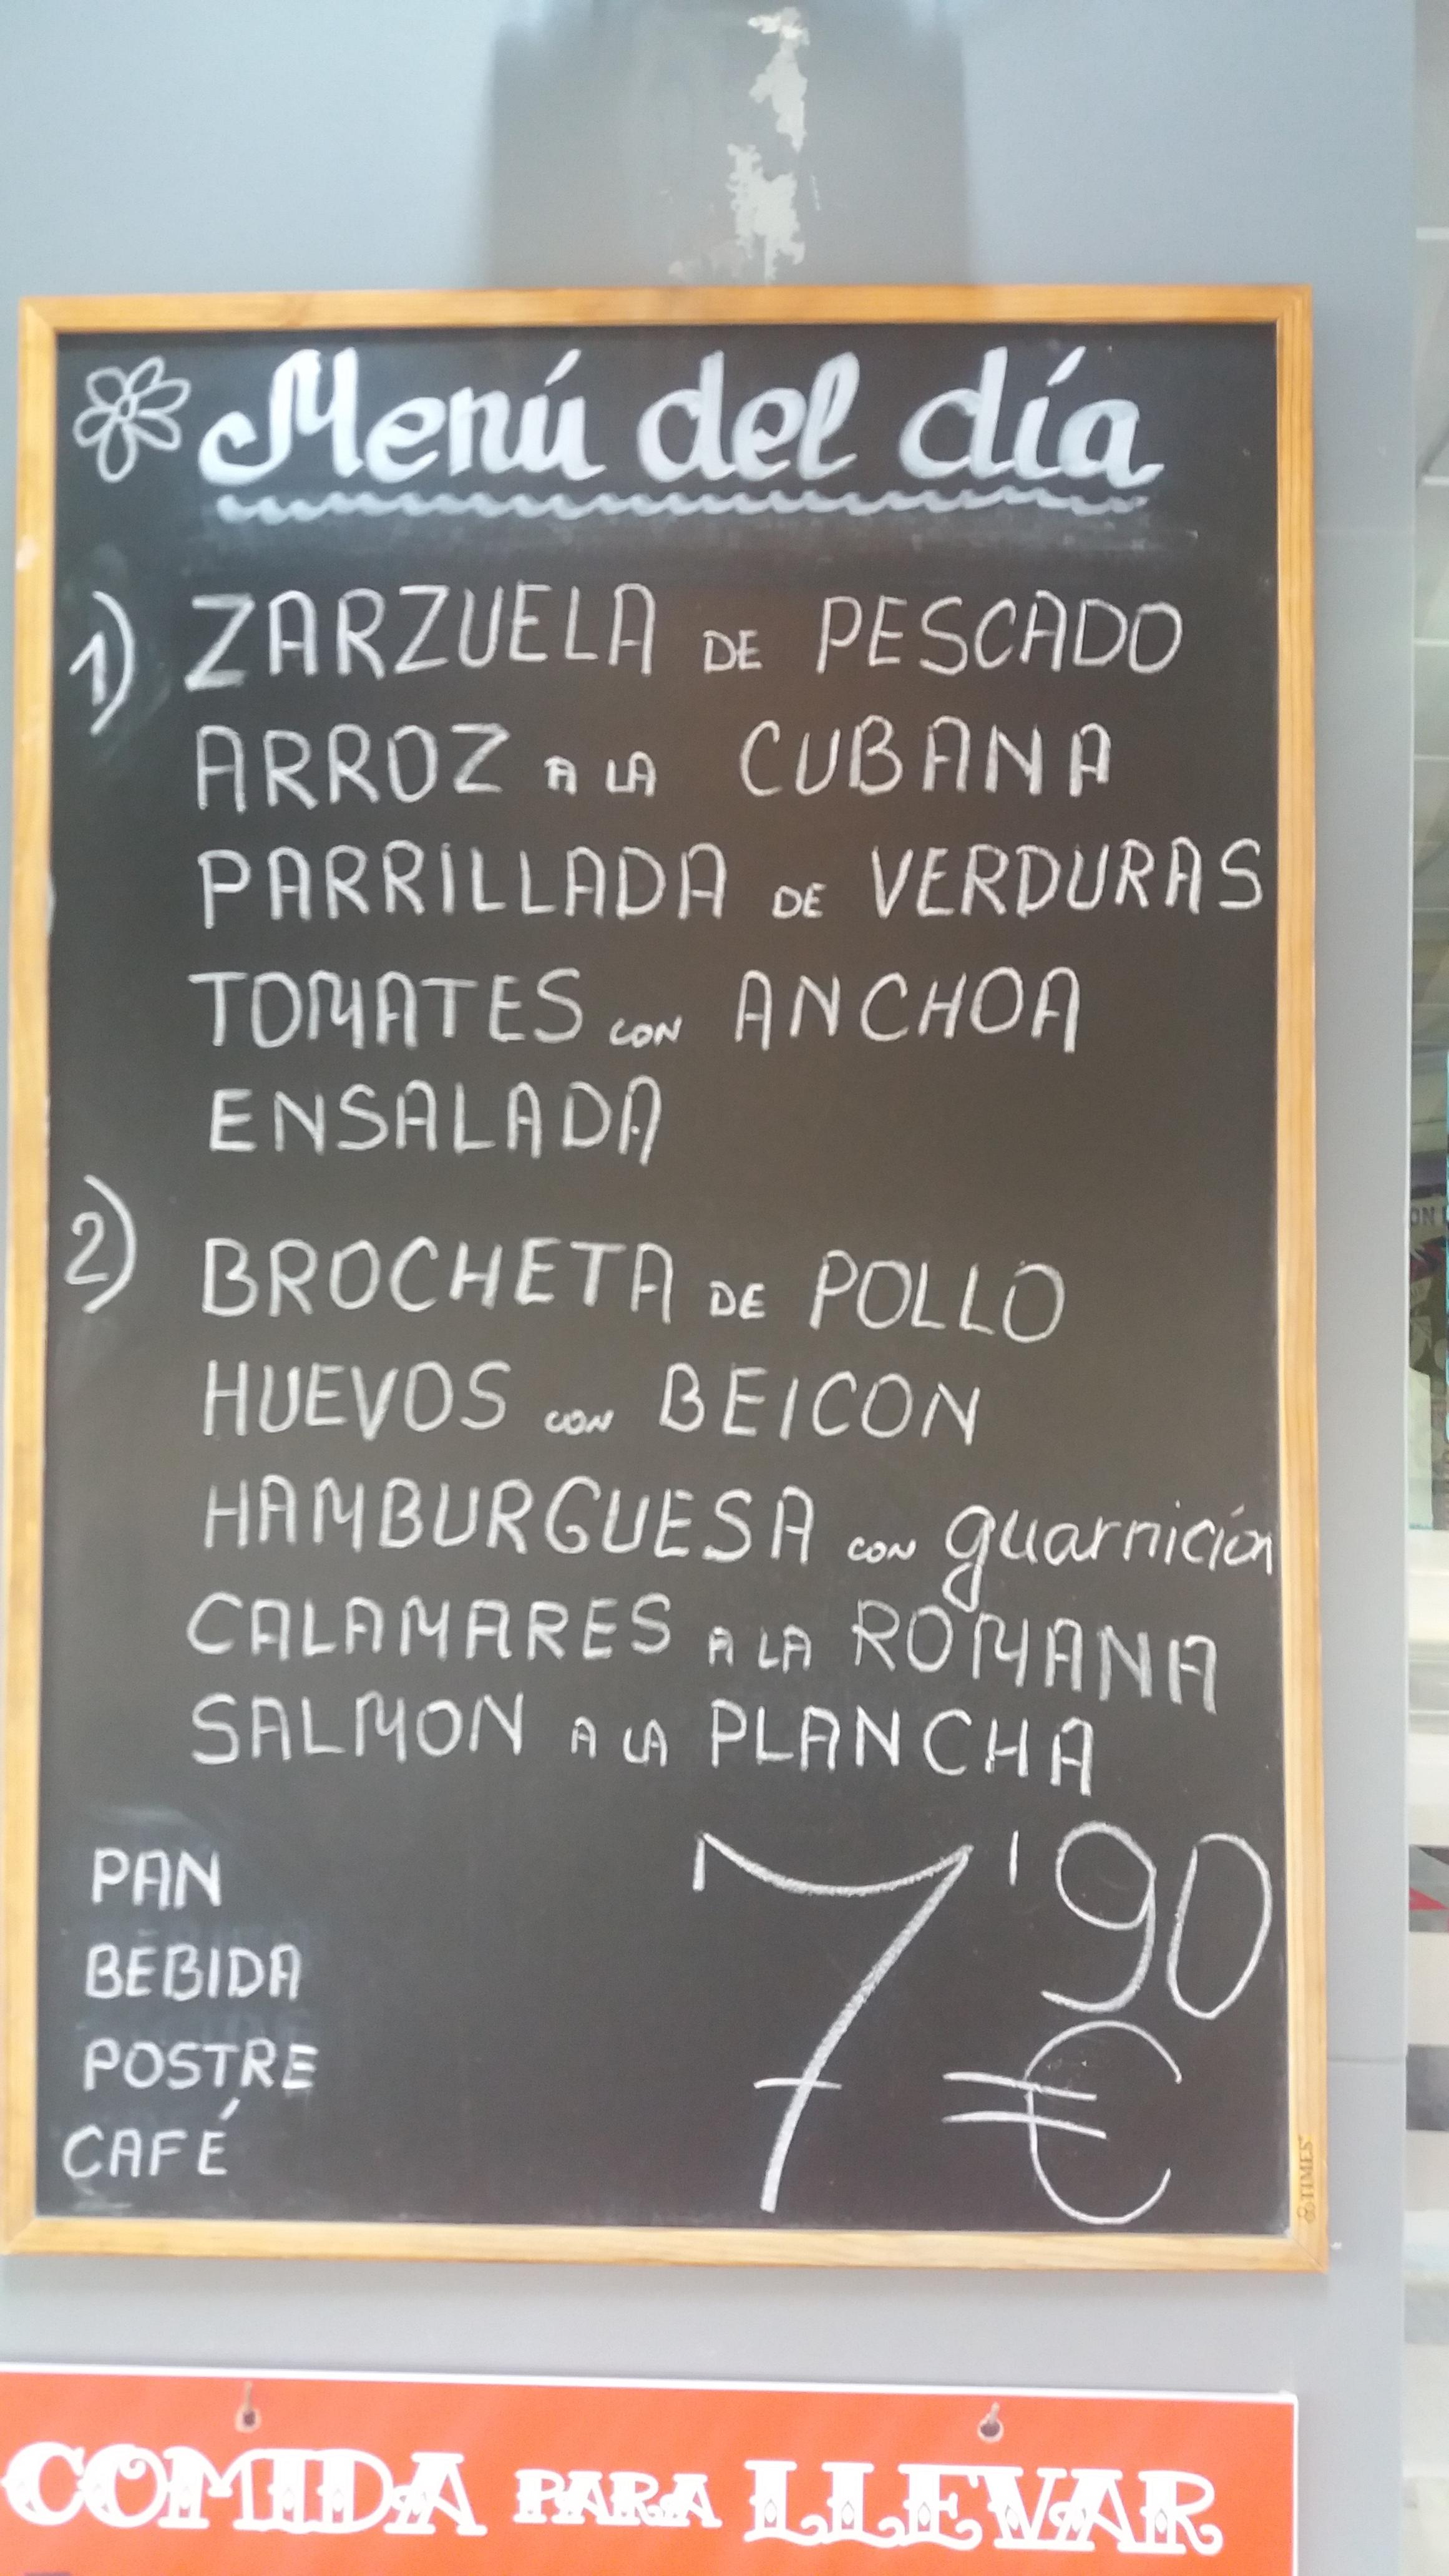 Menú del día
1) ZARZUELA DE PESCADO
ARROZ A LA CUBANA
PARRILLADA DE VERDURAS
TOMATES CON ANCHOA
ENSALADA
2) BROCHETA DE POLLO
HUEVOS CON BEICON
HAMBURGUESA CON guarnición
CALAMARES A LA ROMANA
SALMON A LA PLANCHA
PAN
BEBIDA
POSTRE
CAFÉ
7'90
€
TIMES
COMIDA PARA LLEVAR